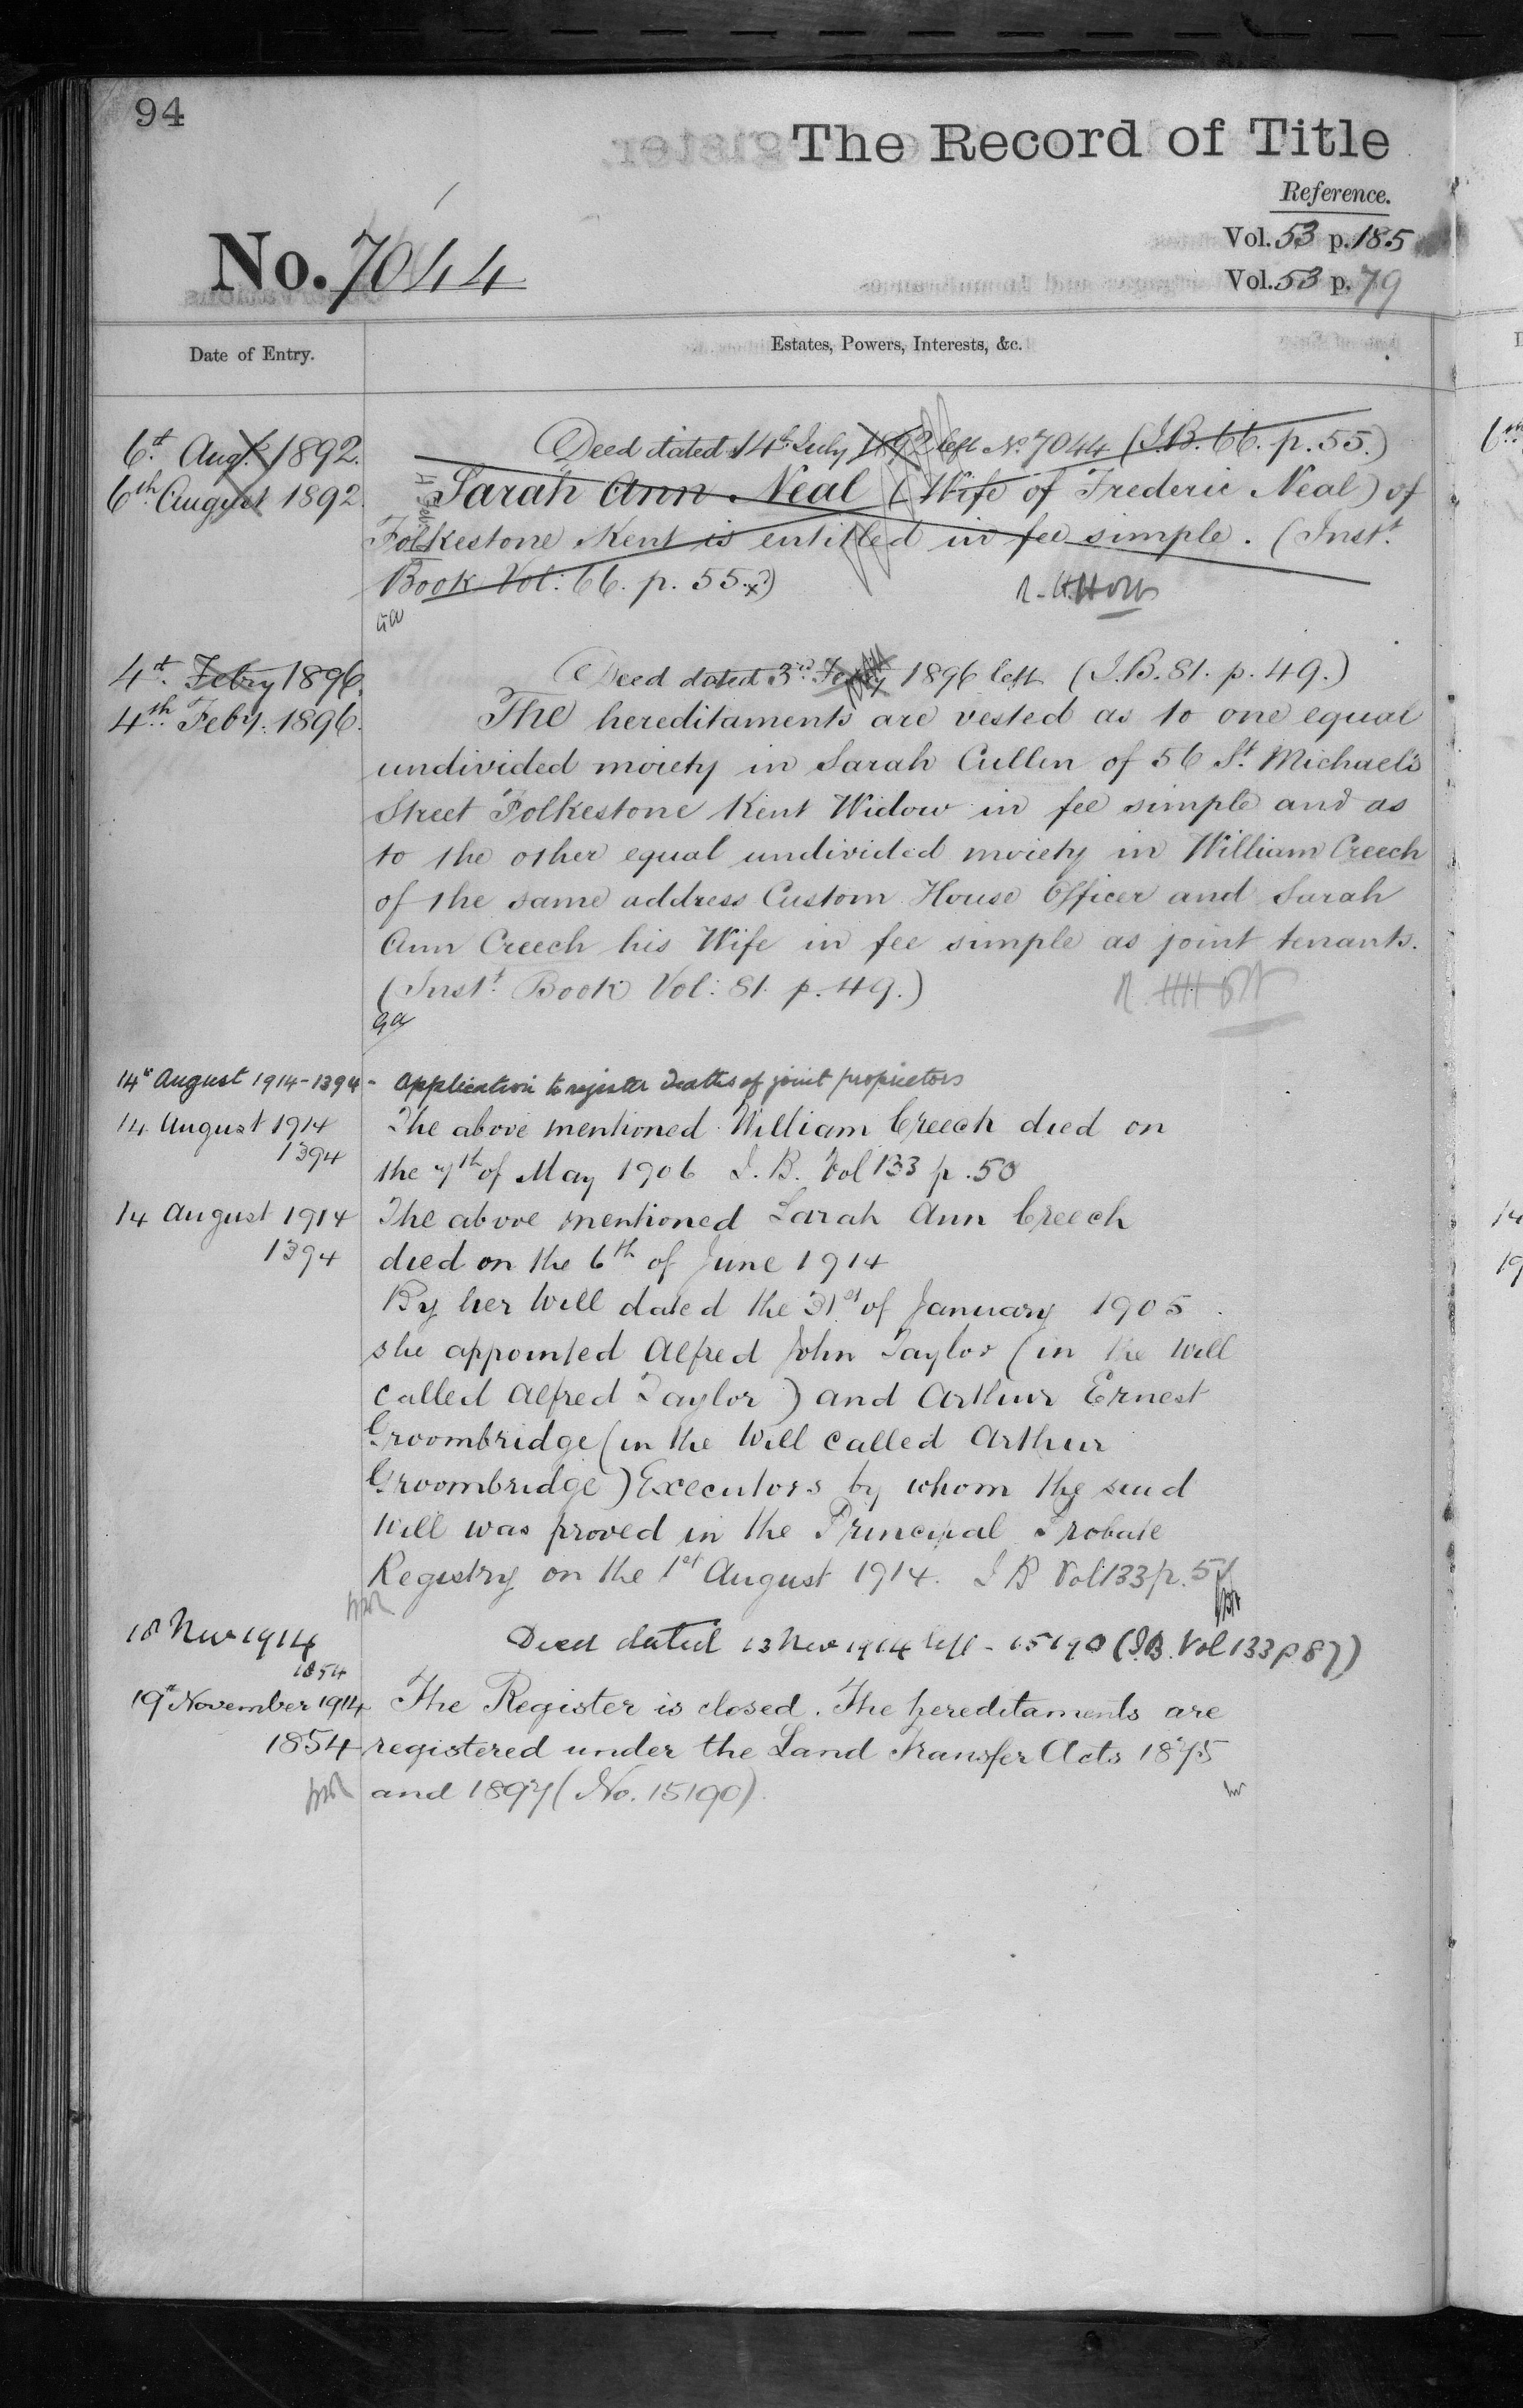 94
The Record of Title
Reference.
Vol. 53 p. 185
Vol. 53 p. 79
No. 7044
Date of Entry.
Estates, Powers, Interests, &c.
6th Augt. 1892. Deed dated 14th July 1892 left No. 7044 (I.B. 66. p. 55.)
6th August 1892. Sarah Ann Neal (Wife of Frederic Neal) of
Folkestone Kent is entitled in fee simple. (Inst.
Book Vol: 66. p. 55.)
4th Febry 1896. Deed dated 3rd Febry 1896 left (I.B. 81. p. 49.)
4th Feby. 1896. The hereditaments are vested as to one equal
undivided moiety in Sarah Cullen of 56 St. Michael's
Street Folkestone Kent Widow in fee simple and as
to the other equal undivided moiety in William Creech
of the same address Custom House Officer and Sarah
Ann Creech his Wife in fee simple as joint tenants.
(Inst. Book Vol: 81. p. 49.)
14th August 1914 - 1394 - Application to register deaths of joint proprietors
14 August 1914 The above mentioned William Creech died on
1394
the 7th of May 1906 I. B. Vol 133 p. 50
14 August 1914 The above mentioned Sarah Ann Creech
1394 died on the 6th of June 1914
By her Will dated the 31st of January 1905
she appointed Alfred John Taylor (in the Will
called Alfred Taylor) and Arthur Ernest
Groombridge (in the Will called Arthur
Groombridge) Executors by whom the said
Will was proved in the Principal Probate
Registry on the 1st August 1914. I B Vol 133 p. 51
18 Nov 1914 Deed dated 13 Nov 1914 left - 15190 (I.B. Vol 133 p 87)
1854
19th November 1914 The Register is closed. The hereditaments are
1854 registered under the Land Transfer Acts 1875
and 1897 (No. 15190).